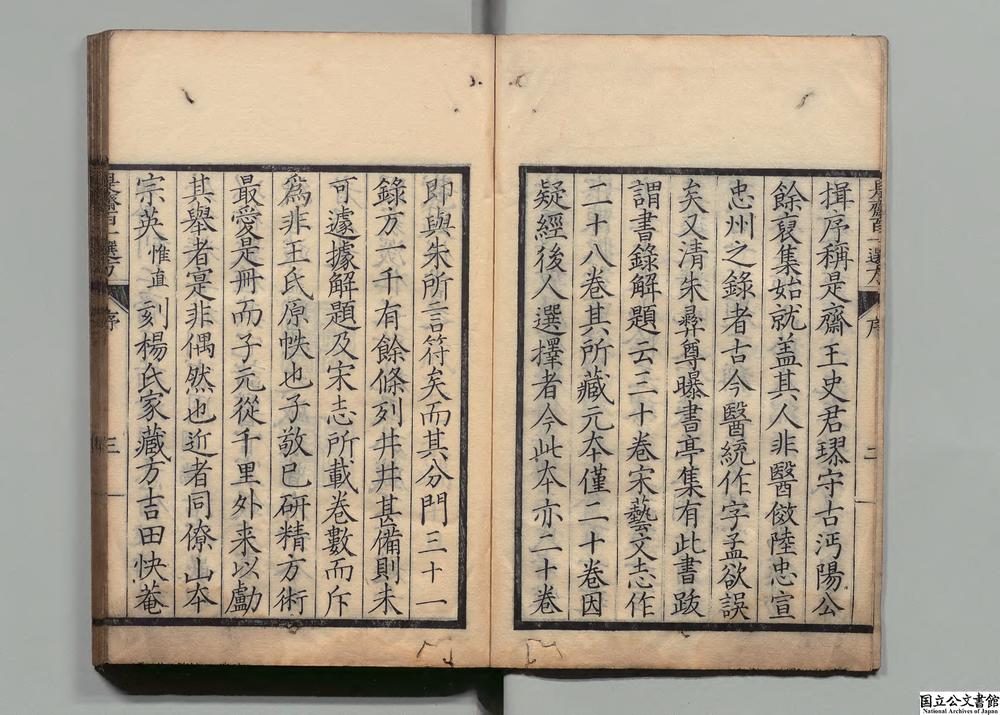 是齋百一選方 序 二
揖序稱是齋王史君璆守古沔陽公
餘裒集始就盖其人非醫倣陸忠宣
忠州之錄者古今醫統作字孟欲誤
矣又清朱彝尊曝書亭集有此書跋
謂書錄解題云三十卷宋藝文志作
二十八卷其所藏元夲僅二十卷因
疑經後人選擇者今此夲亦二十卷
即與朱所言符矣而其分門三十一
錄方一千有餘條列井井甚備則未
可遽據解題及宋志所載卷數而斥
爲非王氏原帙也子敬巳研精方術
最愛是冊而子元從千里外来以勮
其舉者寔非偶然也近者同僚山夲
宗英惟直刻楊氏家藏方吉田快菴
是齋百一選方 序 三
国立公文書館
National Archives of Japan